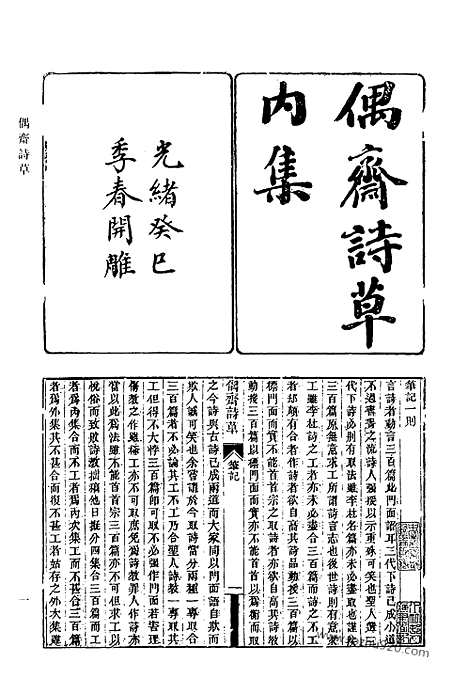 偶齋詩草
內集
光緒癸巳
季春開雕
偶齋詩草
筆記一則
言詩者動言三百篇此門面語耳三代下詩已成小道
不過書畫之流詩人強援以示重殊可笑也聖人選三
百篇原無意求工所謂詩言志也後世詩則有
代下詩必別有取法雖李杜名篇亦未必盡取也誤矣
工雖李杜詩之工者亦未必盡合三百篇而詩之不工
者却頗有合者作詩者欲自高其詩品動援三百篇以
標門面而實不能首首宗之取詩者亦欲自高其詩
動援三百篇以標門面而實亦不能首首以為衡而
偶齋詩草
筆記
一
之今詩與古詩已成兩道而大家間以門面語自欺而
欺人誠可笑也余嘗謂於今取詩當分兩種一專取其合
三百篇者不必論其工不工乃合聖人詩教一專取其
工但得不大悖三百篇即可取不必強作門面
傷教之作雖極工亦不可取庶免獨詩教罪人作詩亦
當以此為法雖不能首首宗三百篇亦不可但求工以
悅俗而致敗詩教拙稿他日擬分四集合三百篇而工
者為內集合而不工者為內次集工而不甚合三百篇
者為外集其不甚合而復不甚工若姑存之外次集
一